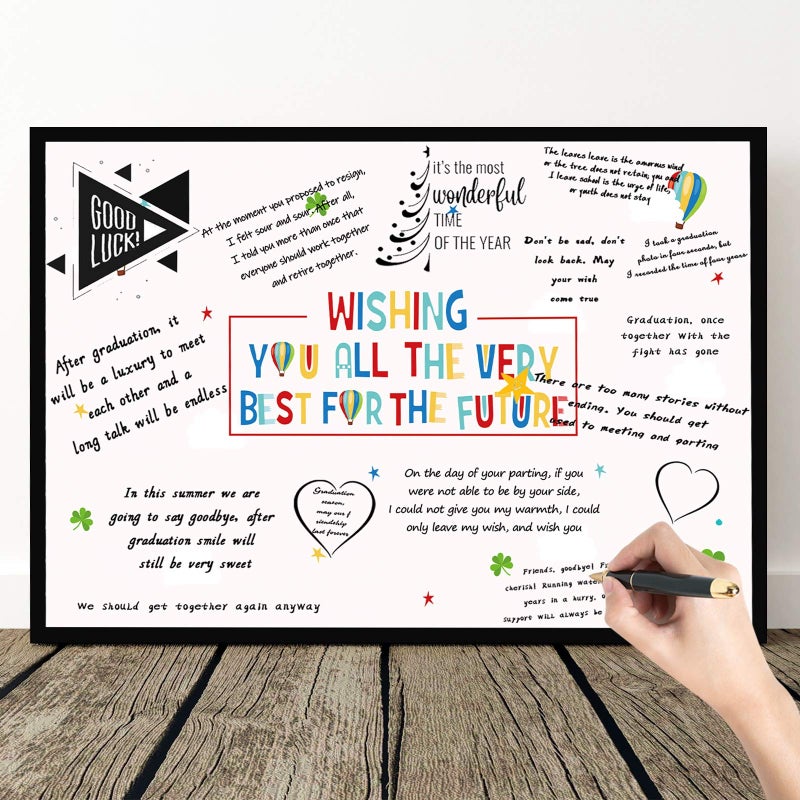 GOOD
LUCK!
At the moment you proposed to resign,
I felt sour and sour. After all,
I told you more than once that
everyone should work together
and retire together.
it's the most
wonderful
TIME
OF THE YEAR
The leaves leave is the amorous wind
or the tree does not retain, you and
I leave school is the urge of life,
or youth does not stay
Don't be sad, don't
look back. May
your wish
come true
I took a graduation
photo in four seconds, but
I recorded the time of four years
Graduation, once
together with the
fight has gone
WISHING
YOU ALL THE VERY
BEST FOR THE FUTURE
After graduation, it
will be a luxury to meet
each other and a
long talk will be endless
There are too many stories without
ending. You should get
used to meeting and parting
In this summer we are
going to say goodbye, after
graduation smile will
still be very sweet
Graduation
season,
may our f
riendship
last forever
On the day of your parting, if you
were not able to be by your side,
I could not give you my warmth, I could
only leave my wish, and wish you
We should get together again anyway
Friends, goodbye!
cherish! Running
years in a hurry,
support will always be